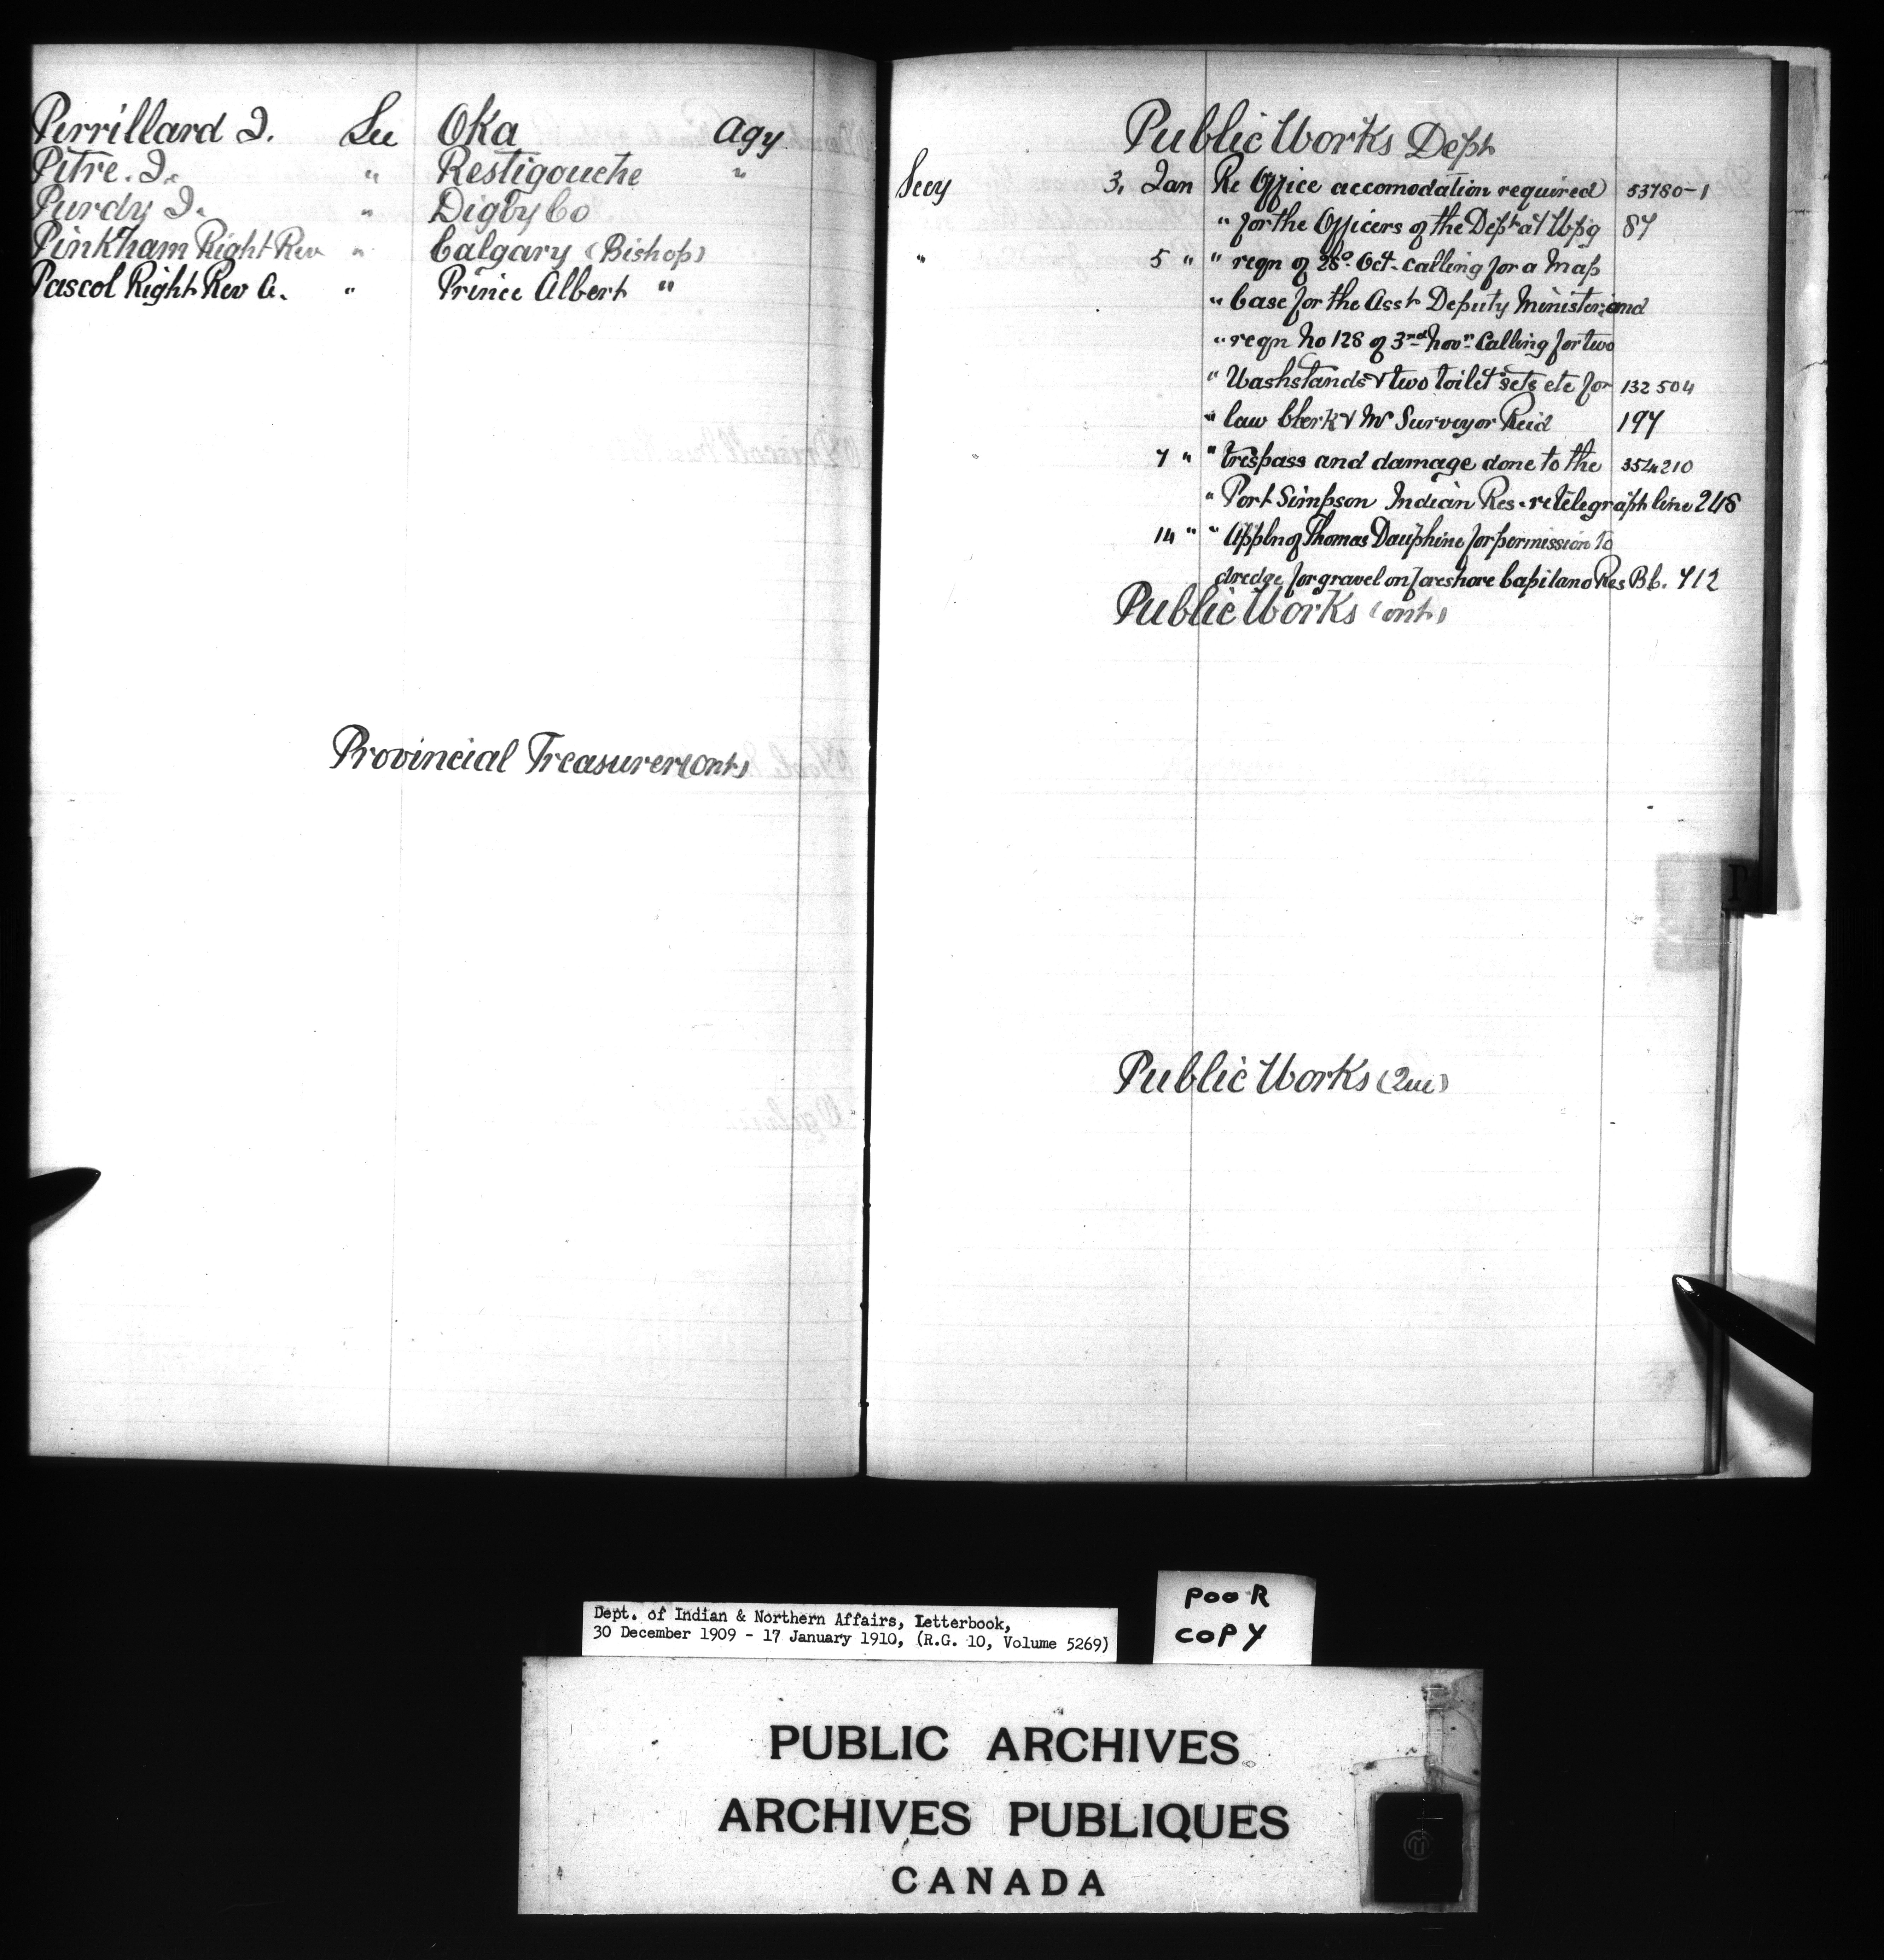 Perrillard J. See Oka Agy
Pitre. J. " Restigouche "
Purdy J. " Digby Co
Pinkham Right Rev " Calgary (Bishop)
Pascol Right Rev A. " Prince Albert "
Provincial Treasurer (Ont)
Public Works Dept
Secy 3. Jan Re Office accomodation required 53780-1
" for the Officers of the Dept at Wpg 87
" 5 " " reqn of 28o Oct. calling for a Map
" Case for the Asst Deputy Minister: and
" reqn No 128 of 3rd Novr Calling for two
" Washstands & two toilet sets etc for 132504
" law Clerk & Mr Surveyor Reid 197
7 " " Trespass and damage done to the 354210
" Port Simpson Indian Res. re telegraph line 248
14 " " Appln of Thomas Dauphine for permission to
dredge for gravel on foreshore Capilano Res B.C. 712
Public Works (Ont)
Public Works (Que)
P
Dept. of Indian & Northern Affairs, Letterbook,
30 December 1909 - 17 January 1910, (R.G. 10, Volume 5269)
POOR
COPY
PUBLIC ARCHIVES
ARCHIVES PUBLIQUES
CANADA